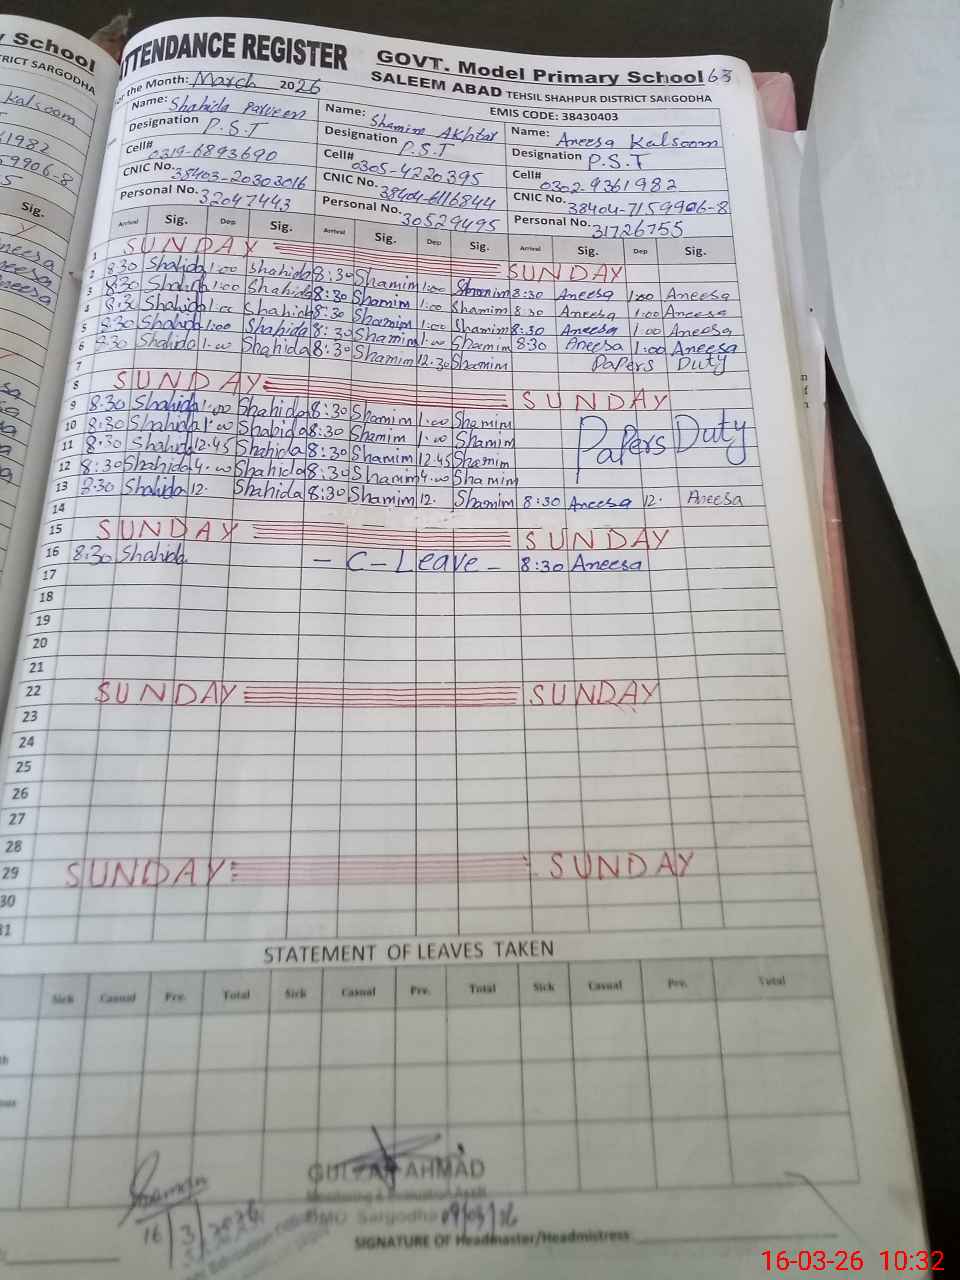 ATTENDANCE REGISTER GOVT. Model Primary School 63
SALEEM ABAD TEHSIL SHAHPUR DISTRICT SARGODHA
For the Month: March 2026 EMIS CODE: 38430403
Name: Shahida Parveen Name: Shamim Akhtar Name: Aneesa Kalsoom
Designation P.S.T Designation P.S.T Designation P.S.T
Cell# 0319-6893690 Cell# 0305-4220395 Cell# 0302-9361982
CNIC No. 38403-20303016 CNIC No. 38404-6116844 CNIC No. 38404-7159906-8
Personal No. 32047443 Personal No. 30529495 Personal No. 31726755
Arrival Sig. Dep Sig. Arrival Sig. Dep Sig. Arrival Sig. Dep Sig.
1 SUNDAY SUNDAY
2 8:30 Shahida 1:00 Shahida 8:30 Shamim 1:00 Shamim 8:30 Aneesa 1:00 Aneesa
3 8:30 Shahida 1:00 Shahida 8:30 Shamim 1:00 Shamim 8:30 Aneesa 1:00 Aneesa
4 8:30 Shahida 1:00 Shahida 8:30 Shamim 1:00 Shamim 8:30 Aneesa 1:00 Aneesa
5 8:30 Shahida 1:00 Shahida 8:30 Shamim 1:00 Shamim 8:30 Aneesa 1:00 Aneesa
6 8:30 Shahida 1:00 Shahida 8:30 Shamim 12:30 Shamim Papers Duty
7
8 SUNDAY SUNDAY
9 8:30 Shahida 1:00 Shahida 8:30 Shamim 1:00 Shamim
10 8:30 Shahida 1:00 Shahida 8:30 Shamim 1:00 Shamim Papers Duty
11 8:30 Shahida 12:45 Shahida 8:30 Shamim 12:45 Shamim
12 8:30 Shahida 4:00 Shahida 8:30 Shamim 4:00 Shamim
13 8:30 Shahida 12. Shahida 8:30 Shamim 12. Shamim 8:30 Aneesa 12. Aneesa
14
15 SUNDAY SUNDAY
16 8:30 Shahida - C-Leave - 8:30 Aneesa
17
18
19
20
21
22 SUNDAY SUNDAY
23
24
25
26
27
28
29 SUNDAY SUNDAY
30
31
STATEMENT OF LEAVES TAKEN
Sick Casual Prv. Total Sick Casual Prv. Total Sick Casual Prv. Total
GULZAR AHMAD
Sargodha 09/03/26
16/3/2026
SIGNATURE OF Headmaster/Headmistress
16-03-26 10:32